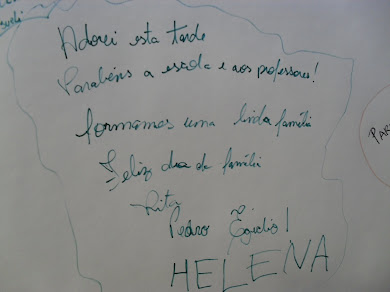 Adorei esta tarde
Parabéns a escola e aos professores!
formamos uma linda família
Feliz dia da família
Rita
Pedro Egidio!
HELENA
PAR